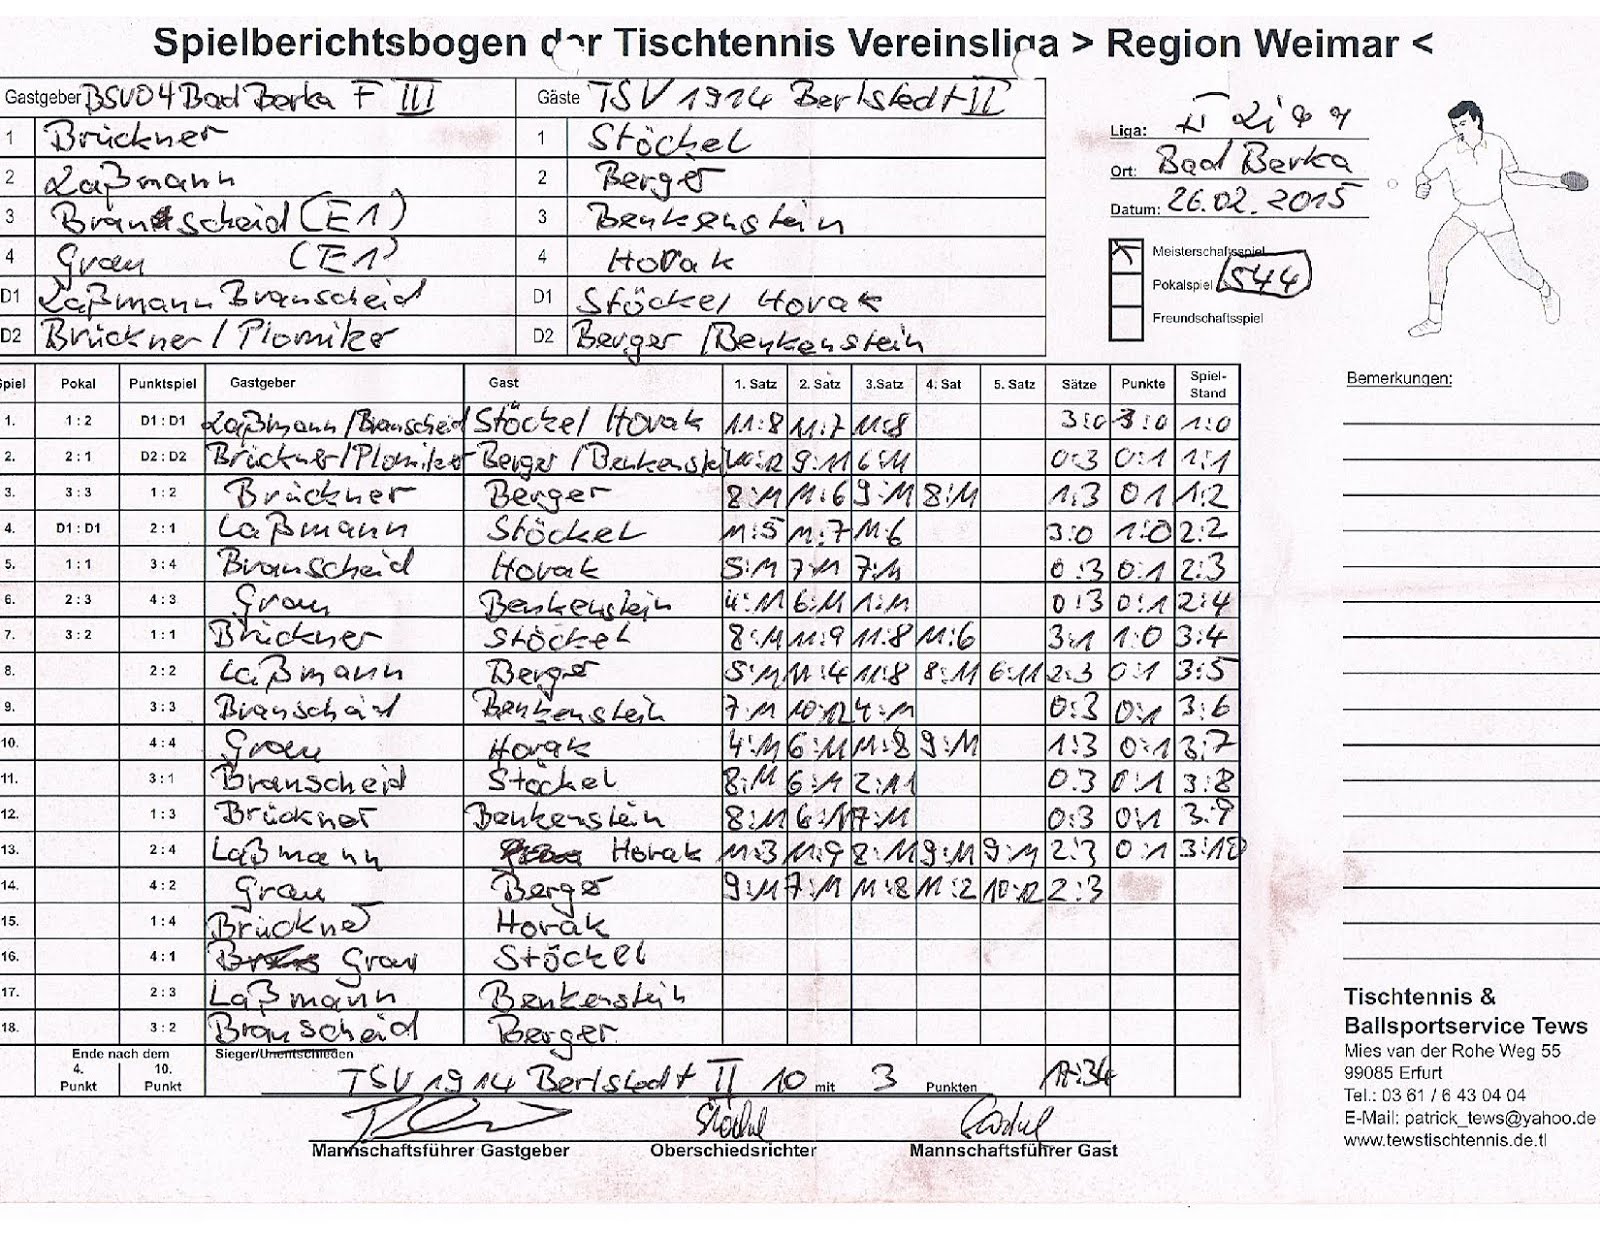 Spielberichtsbogen der Tischtennis Vereinsliga > Region Weimar <
Gastgeber BSV04 Bad Berka F III Gäste TSV 1914 Berlstedt II
1 Brückner 1 Stöckel
2 Laßmann 2 Berger
3 Branscheid (E1) 3 Benkenstein
4 Grau (E1) 4 Horak
D1 Laßmann Branscheid D1 Stöckel Horak
D2 Brückner / Plomiker D2 Berger / Benkenstein
Liga: II Liga
Ort: Bad Berka
Datum: 26.02.2015
Meisterschaftsspiel
Pokalspiel 544
Freundschaftsspiel
Spiel Pokal Punktspiel Gastgeber Gast 1. Satz 2. Satz 3.Satz 4. Sat 5. Satz Sätze Punkte Spiel-Stand
1. 1 : 2 D1 : D1 Laßmann / Branscheid Stöckel Horak 11:8 11:7 11:8 3:0 1:0
2. 2 : 1 D2 : D2 Brückner / Plomiker Berger / Benkenstei 10:12 9:11 6:11 0:3 0:1 1:1
3. 3 : 3 1 : 2 Brückner Berger 8:11 11:6 9:11 8:11 1:3 0 1 1:2
4. D1 : D1 2 : 1 Laßmann Stöckel 11:5 11:7 11:6 3:0 1:0 2:2
5. 1 : 1 3 : 4 Branscheid Horak 5:11 7:11 7:11 0:3 0:1 2:3
6. 2 : 3 4 : 3 Grau Benkenstein 4:11 6:11 1:11 0:3 0:1 2:4
7. 3 : 2 1 : 1 Brückner Stöckel 8:11 11:9 11:8 11:6 3:1 1:0 3:4
8. 2 : 2 Laßmann Berger 5:11 11:4 11:8 8:11 6:11 2:3 0:1 3:5
9. 3 : 3 Branscheid Benkenstein 7:11 10:12 4:11 0:3 0:1 3:6
10. 4 : 4 Grau Horak 4:11 6:11 11:8 9:11 1:3 0:1 3:7
11. 3 : 1 Branscheid Stöckel 8:11 6:11 2:11 0:3 0:1 3:8
12. 1 : 3 Brückner Benkenstein 8:11 6:11 7:11 0:3 0:1 3:9
13. 2 : 4 Laßmann Horak 11:3 11:9 8:11 9:11 9:11 2:3 0:1 3:10
14. 4 : 2 Grau Berger 9:11 7:11 11:8 11:2 10:12 2:3
15. 1 : 4 Brückner Horak
16. 4 : 1 Grau Stöckel
17. 2 : 3 Laßmann Benkenstein
18. 3 : 2 Branscheid Berger
Ende nach dem 4. Punkt 10. Punkt Sieger/Unentschieden
TSV 1914 Berlstedt II 10 mit 3 Punkten :34
Stöckel
Mannschaftsführer Gastgeber Oberschiedsrichter Mannschaftsführer Gast
Bemerkungen:
Tischtennis &
Ballsportservice Tews
Mies van der Rohe Weg 55
99085 Erfurt
Tel.: 03 61 / 6 43 04 04
E-Mail: patrick_tews@yahoo.de
www.tewstischtennis.de.tl